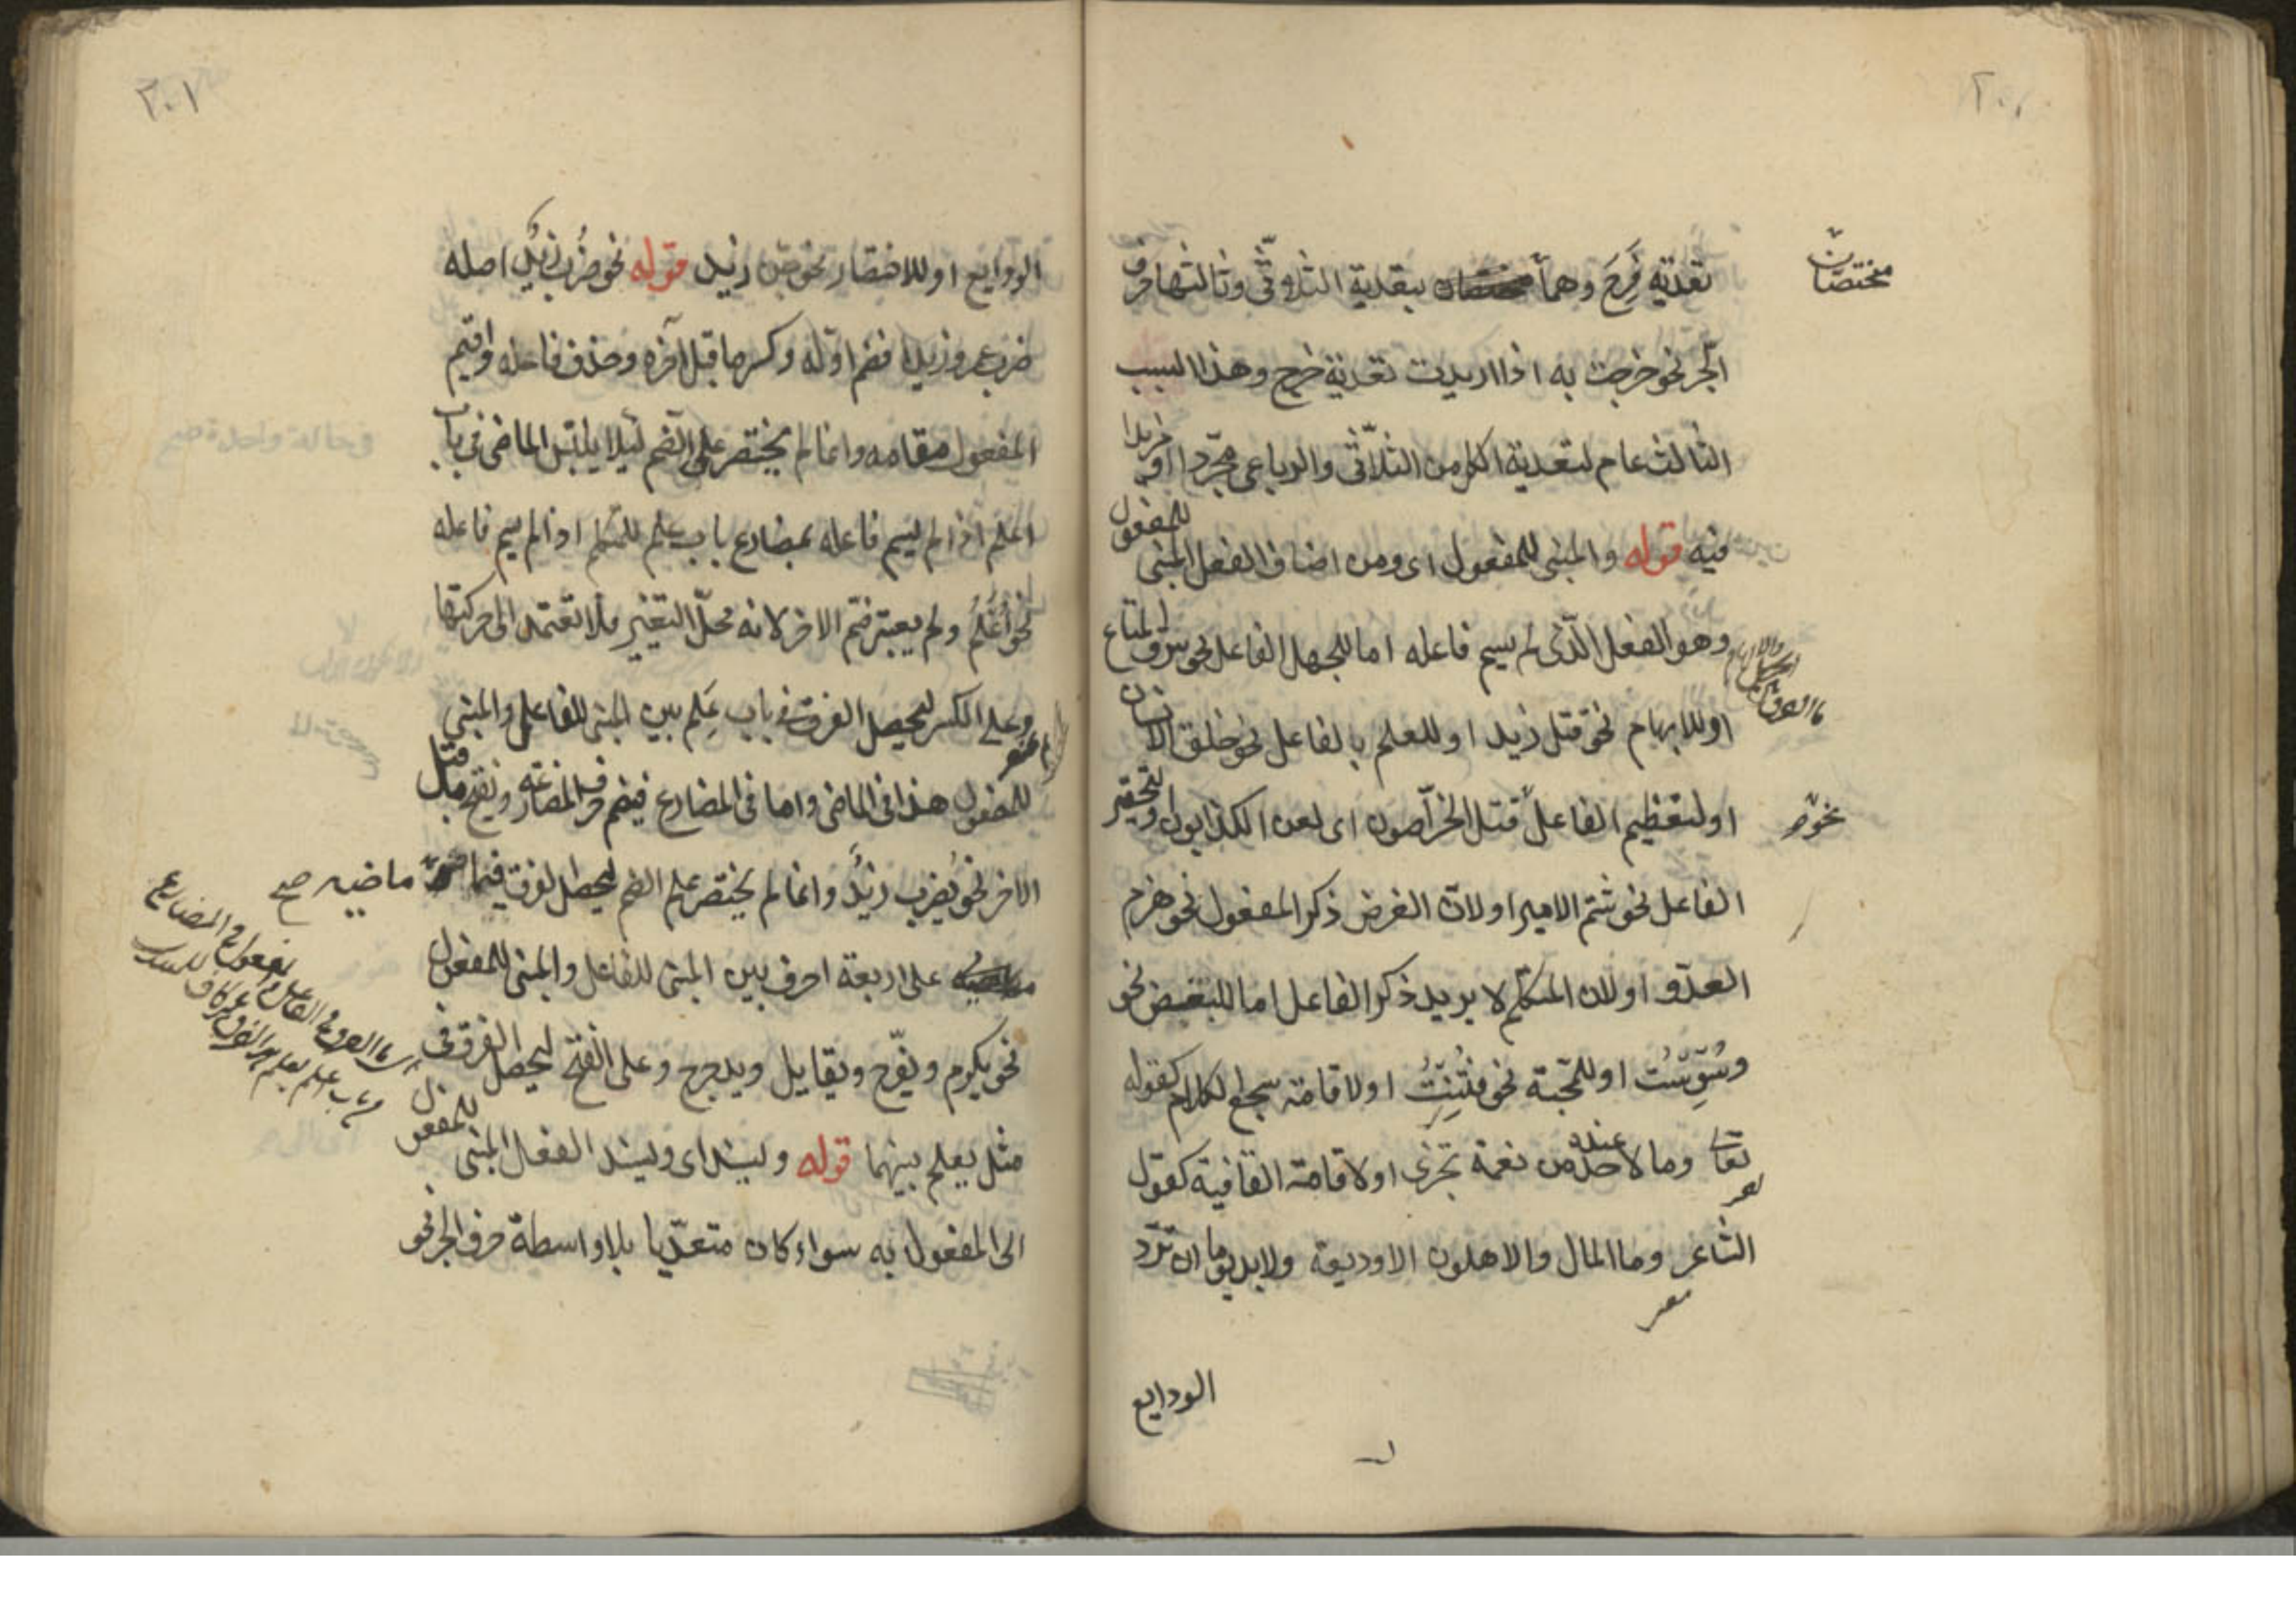 تعدية فَرِحَ وهما بتعدية الثلاثّى وثالثها حرف
مختصّان
الجّر نحو خرجت به اذا اردت تعدية خرج وهذا السبب
الثالث عام لتعدية الكل من الثلاّثى والرباعى مجّردا او مزيدا
فيه قوله والمبنى للمفعول اى ومن اصناف الفعل المبنى للمفعول
وهو الفعل الّذى لم يسم فاعله اما للجهل الفاعل نحو سرق المتاع
او للابهام نحو قتل زيد او للعلم بالفاعل نحو خلق الانسان
او لتعظيم الفاعل قتل الخرّاصون اى لعن الكذابون ولتحقير
نحو
الفاعل نحو شتم الامير او لانّ الغرض ذكر المفعول نحو هزم
العدّو او لان المتكلّم لا يريد ذكر الفاعل اما للبغض نحو
وسُوِّسْتُ او للمحّبة نحو فُتِنْتُ او لاقامة سجع الكلام كقوله
تعالى وما لاحد عنده من نعمة تجزى او لاقامة القافية كقول
الشاعر وما المال والاهلون الا وديعة ولا بد يوما ان تردّ
الودايع
٢٠١
الودايع او للاختصار نحو جن زيد قوله نحو ضُرب زيدٌ اصله
ضرب عمرو زيدا فضم اوّله وكسر ما قبل آخره وحذف فاعله واقيم
المفعول مقامه وانما لم يختصر على الضم ليلا يلتبس الماضى فى باب
اعلم اذا لم يسم فاعله بمضارع باب علم للمتكلم اذا لم يسم فاعله
نحو أُعْلَمُ ولم يعتبر ضم الاخر لانه محلّ التغيير فلا تعتمد الى حركتها
وعلى الكسر ليحصل الفرق فى باب عَلِم بين المبنى للفاعل والمبنى
للمفعول هذا فى الماضى واما فى المضارع فيضم حرف المضارعة ونفتح ما قبل
الاخر نحو يُضرب زيدٌ وانما لم يختصر على الضم ليحصل الفرق فيما ماضيه صح
على اربعة احرف بين المبنى للفاعل والمبنى للمفعول
نحو يكرم ويفّرح ويقاتل ويدحرج وعلى الفتح ليحصل الفرق فى
مثل يعلم بينهما قوله وليسند اى وليسند الفعل المبنى للمفعول
الى المفعول به سواء كان متعدّيا بلا واسطة حرف الجر نحو